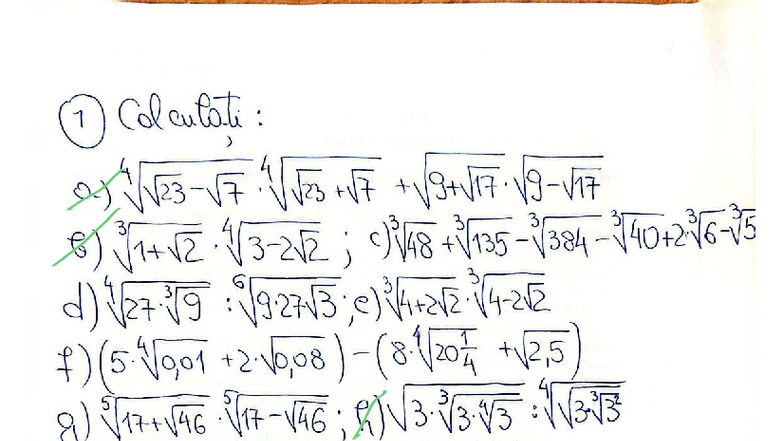 ① Calculați:
a) ⁴√(√23 − √7) · ⁴√(√23 + √7) + √(9+√17) · √(9−√17)
b) ³√(1+√2) · ⁴√(3−2√2) ; c) ³√48 + ³√135 − ³√384 − ³√40 + 2·³√6 − ³√5
d) ⁴√(27·³√9) : ⁶√(9·27√3) ; e) ³√(4+2√2) · ³√(4−2√2)
f) (5·⁴√0,01 + 2·√0,08) − (8·⁴√(20 1/4) + √2,5)
g) ⁵√(17+√46) · ⁵√(17−√46) ; h) √(3·³√(3·⁴√3)) : ⁴√(√(3·³√3²))